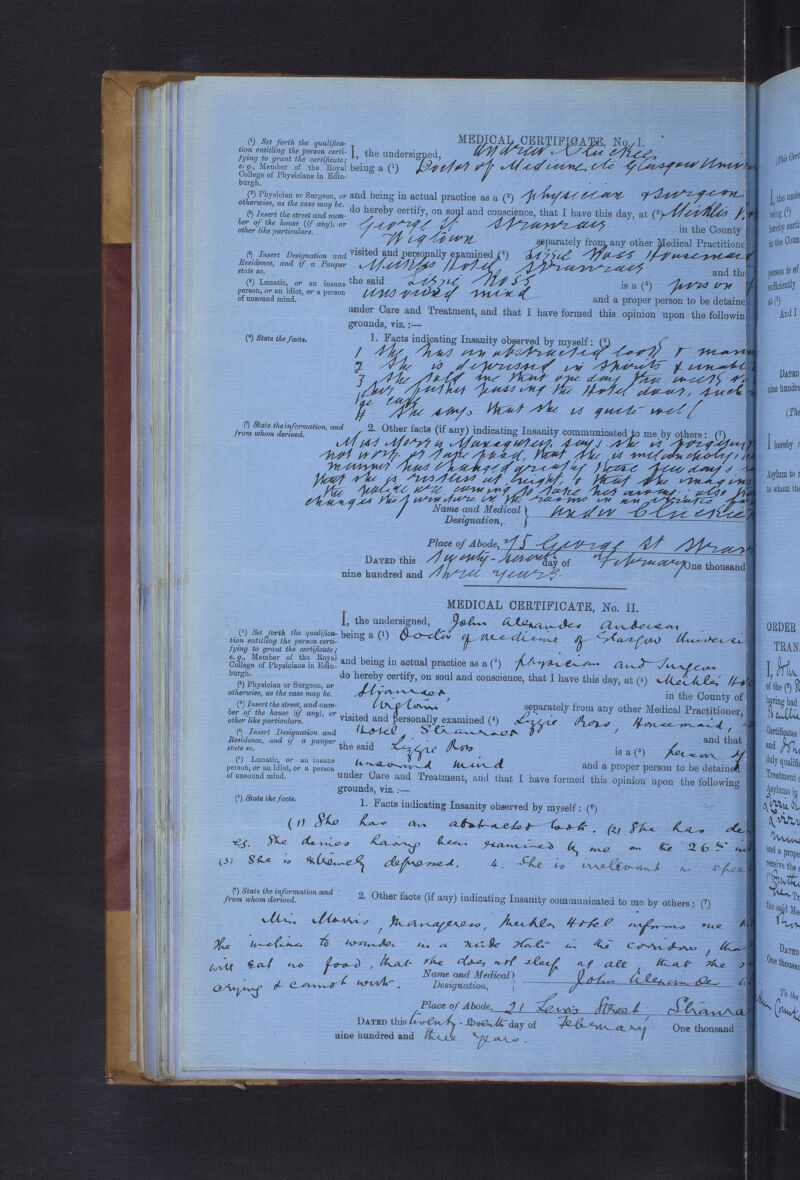 MEDICAL CERTIFICATE, No. I.
(¹) Set forth the qualifica-
tion entitling the person certi-
fying to grant the certificate;
e.g., Member of the Royal
College of Physicians in Edin-
burgh.
(²) Physician or Surgeon, or
otherwise, as the case may be.
(³) Insert the street and num-
ber of the house (if any), or
other like particulars.
(⁴) Insert Designation and
Residence, and if a Pauper
state so.
(⁵) Lunatic, or an insane
person, or an idiot, or a person
of unsound mind.
I, the undersigned, Andrew Cluckie
being a (¹) Doctor of Medicine etc Glasgow Univer
and being in actual practice as a (²) physician & Surgeon
do hereby certify, on soul and conscience, that I have this day, at (³) Meikles
George St Stranraer in the County
Wigtown separately from any other Medical Practitione
visited and personally examined (⁴) Lizzie Ross Housemaid
Meikles Hotel, Stranraer and tha
the said Lizzie Ross is a (⁵) person
unsound mind and a proper person to be detaine
under Care and Treatment, and that I have formed this opinion upon the followin
grounds, viz. :—
(⁶) State the facts.
1. Facts indicating Insanity observed by myself : (⁶)
1 She has an abstracted look & mann
2 She is depressed in spirits & unable
3 She told me that one day this week
her father passing the Hotel door, such
4 She says that she is quite well
(⁷) State the information, and
from whom derived.
2. Other facts (if any) indicating Insanity communicated to me by others : (⁷)
Miss Morris Manageress, says she is
not work or take food, that she is melancholy,
manner has changed greatly these few days
that she is restless at night, & that she imagin
the police are coming to take her away, also
changes the furniture in the rooms in an erratic
Name and Medical
Designation,
Andrew Cluckie
Place of Abode, 45 George St Stran
DATED this twenty-seventh day of February One thousand
nine hundred and three years.
MEDICAL CERTIFICATE, No. II.
(¹) Set forth the qualifica-
tion entitling the person certi-
fying to grant the certificate;
e.g., Member of the Royal
College of Physicians in Edin-
burgh.
(²) Physician or Surgeon, or
otherwise, as the case may be.
(³) Insert the street, and num-
ber of the house (if any), or
other like particulars.
(⁴) Insert Designation and
Residence, and if a pauper
state so,
(⁵) Lunatic, or an insane
person, or an idiot, or a person
of unsound mind.
I, the undersigned, John Alexander Anderson
being a (¹) Doctor of Medicine of Glasgow Universi
and being in actual practice as a (²) physician and Surgeon
do hereby certify, on soul and conscience, that I have this day, at (³) Meikles Ho
Stranraer in the County of
Wigtown separately from any other Medical Practitioner,
visited and personally examined (⁴) Lizzie Ross, Housemaid,
Hotel Stranraer and that
the said Lizzie Ross is a (⁵) person of
unsound mind and a proper person to be detained
under Care and Treatment, and that I have formed this opinion upon the following
grounds, viz. :—
(⁶) State the facts.
1. Facts indicating Insanity observed by myself : (⁶)
(1) She has an abstracted look. (2) She has de
es. She denies having been examined by me on the 26th
(3) She is extremely depressed. 4. She is irrelevant in spee
(⁷) State the information and
from whom derived.
2. Other facts (if any) indicating Insanity communicated to me by others : (⁷)
Miss Morris, Manageress, Meikles Hotel informs me
she inclines to wander in a nude state in the corridors, tha
will eat no food, that she does not sleep at all, that she
crying & cannot work.
Name and Medical
Designation,
John Alexander
Place of Abode, 21 Lewis Street, Stranra
DATED this twenty-seventh day of February One thousand
nine hundred and three years.
(This Cert
I, the unde
being (¹)
hereby certi
in the Coun
person is of
sufficiently
at (²)
And I
DATED
nine hundre
(The
I hereby
Asylum to
to whom the
ORDER
TRAN
I, John
of the (²)
having had
Certificates
and John
duly qualifie
Treatment
Asylums in
and a prope
receive the
the said Me
DATED
One thousan
To the